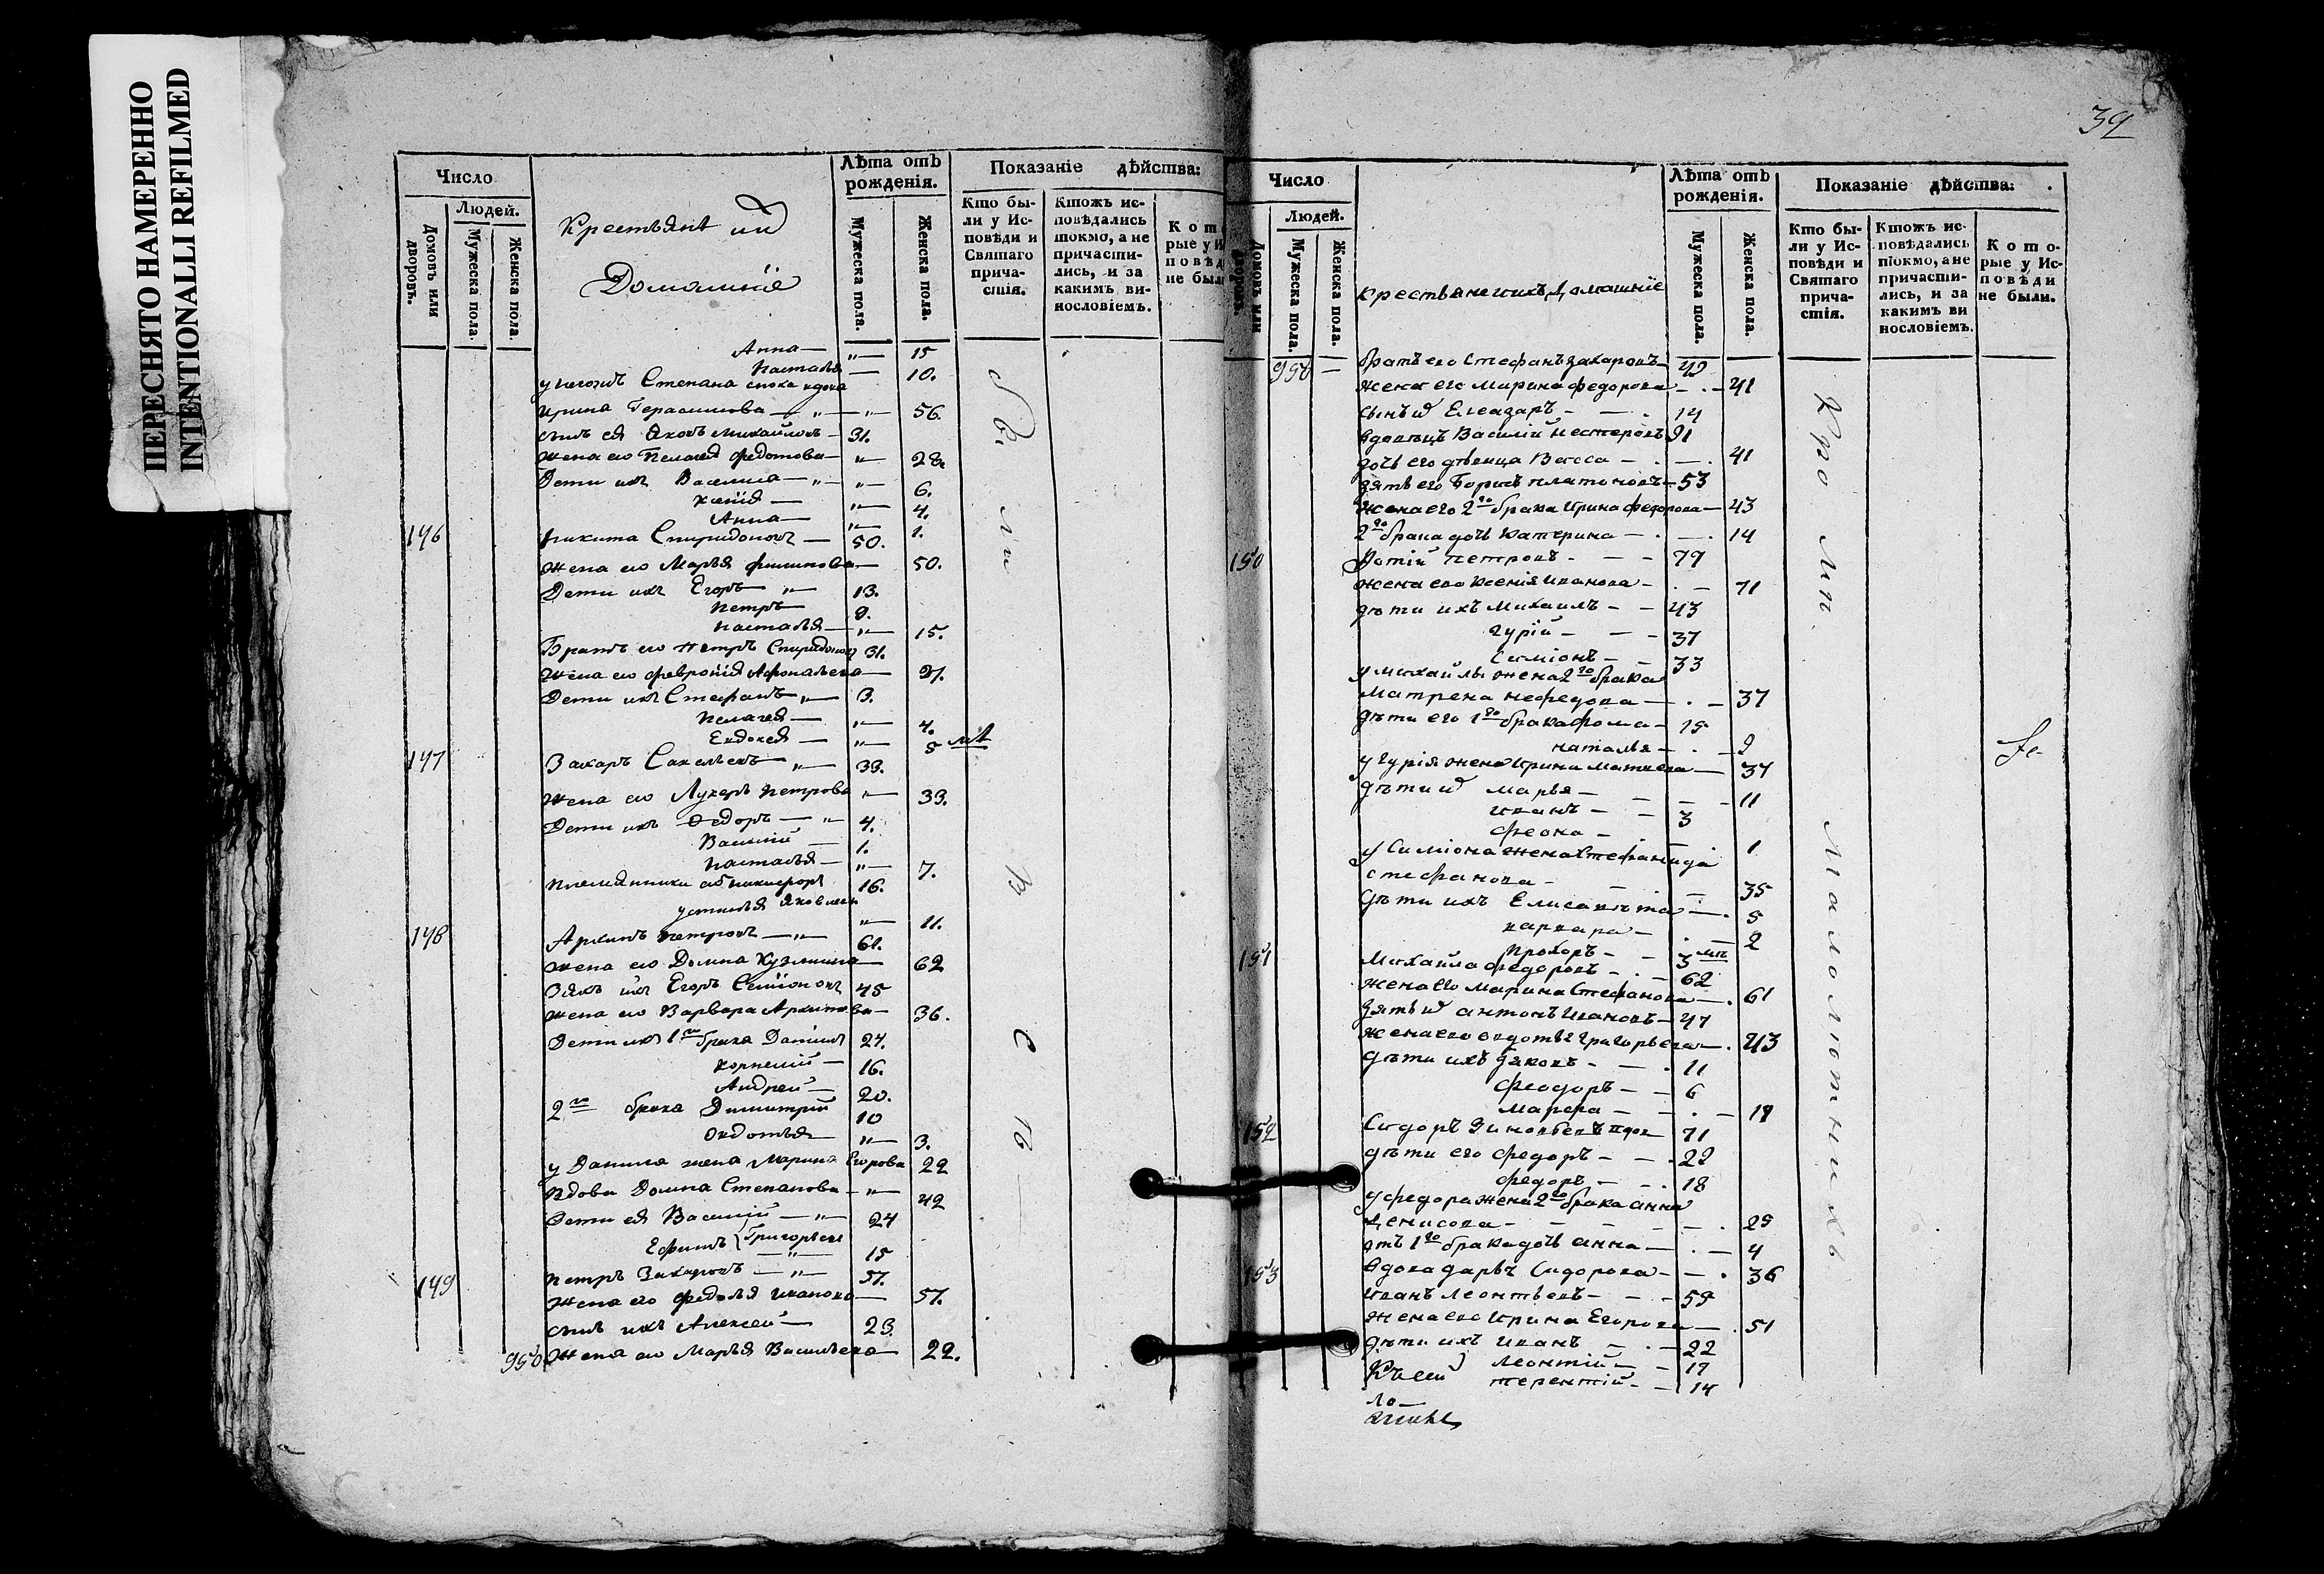 ПЕРЕСНЯТО НАМЕРЕННО
INTENTIONALLI REFILMED
Число
Людей.
Домовъ или дворовъ.
Мужеска пола.
Женска пола.
Крестьяне их
Домашніе
Лѣта отъ рожденія.
Мужеска пола.
Женска пола.
Показаніе дѣйства:
Кто бы-
ли у Ис-
повѣди и
Святаго
прича-
стія.
Ктожъ ис-
повѣдались
токмо, а не
причасти-
лись, и за
какимъ ви-
нословіемъ.
Кото
рые у И
повѣд
не был
Анна — " — 15
Наталья — 10.
Степана вдова
Ирина Герасимова — " — " — 56.
сынъ ея Яковъ Михайловъ — 31.
Жена его Пелагея Федотова — " — 28.
Дети их Василиса — " — " — 6.
Ксенія — " — 4.
Анна — " — 1.
146 Никита Спиридоновъ — 50.
Жена его Марья Филипова — 50.
Дети ихъ Егоръ — " — 13.
Петръ — 9.
Наталья — " — 15.
Братъ его Петръ Спиридонов 31.
Жена его Феврония Афонасьева — 27.
Дети их Стефанъ — " — 3.
Пелагея — " — 4.
Евдокея — " — 5
147 Захаръ Савельевъ — " — 33.
Жена его Лукерь Петрова " — 33.
Дети ихъ Федоръ — " — 4.
Василий — 1.
Наталья — " — 7.
Племянники Никифоръ 16.
устинья Яковлевы " — 11.
148 Архипъ Петровъ — " — 61.
Жена его Домна Кузмина — 62
Зять их Егоръ Семіонов 45
Жена его Варвара Архипова — 36.
Дети их 1го брака Данила 24.
Корнелий — 16.
Андрей — 20.
2го брака Димитрий 10
Овдотья — " — 3.
у Данила жена Марина Егорова 22
Вдова Домна Степанова — " — 42
Дети ея Василий — " — 24
Ефимъ Григорьевы — " — 15
149 Петръ Захаровъ — " — 57.
Жена его Федосья Иванова — 57.
сынъ ихъ Алексей — 23.
950 Жена его Марья Васильева — 22.
39
Число
Людей.
Домовъ или дворовъ.
Мужеска пола.
Женска пола.
крестьяне и ихъ домашніе
Лѣта отъ рожденія.
Мужеска пола.
Женска пола.
Показаніе дѣйства:
Кто бы-
ли у Ис-
повѣди и
Святаго
прича-
стія.
Ктожъ ис-
повѣдались
токмо, а не
причасти-
лись, и за
какимъ ви
нословіемъ.
Кото-
рые у Ис-
повѣди
не были.
братъ его Стефанъ Захаровъ — 42
жена его Марина Федорова — 41
сынъ их Елеазаръ — 14
вдовецъ Василий Нестеровъ 91
дочь его девица Васса — 41
зять его Борисъ Платоновъ — 53
Жена его 2го брака Ирина Федорова — 43
2го брака дочь Катерина — 14
150 Фотий Петровъ — 79
жена его Ксенія Иванова — 71
дѣти ихъ Михаилъ — 43
Гурій — 37
Симіонъ — 33
у Михайлы жена 2го брака
Матрена Нефедова — 37
дѣти его 1го брака Фома — 15
наталья — 9
у Гурія жена Ирина Матвева — 37
дѣти их Марья — 11
Иванъ — 3
Фекла — 1
у Симіона жена Стефанида
Стефанова — 35
дѣти ихъ Елисавѣта — 5
варвара — 2
Прохоръ — 3
151 Михайла Федоровъ — 62
жена его Марина Стефанова — 61
зять их Антонъ Ивановъ — 47
жена его Овдотья Григорьева — 43
дѣти ихъ Яковъ — 11
Феодоръ — 6
Марфа — 19
152 Сидоръ Зиновьевъ вдов 71
дѣти его Федоръ — 22
Федоръ — 18
у Федора жена 2го брака Анна
Денисова — 25
отъ 1го брака дочь Анна — 4
вдова Дарья Сидорова — 36
153 Иванъ Леонтьевъ — 55
жена его Ирина Егорова — 51
дѣти ихъ Иванъ — 22
Леонтий — 17
Терентій — 14